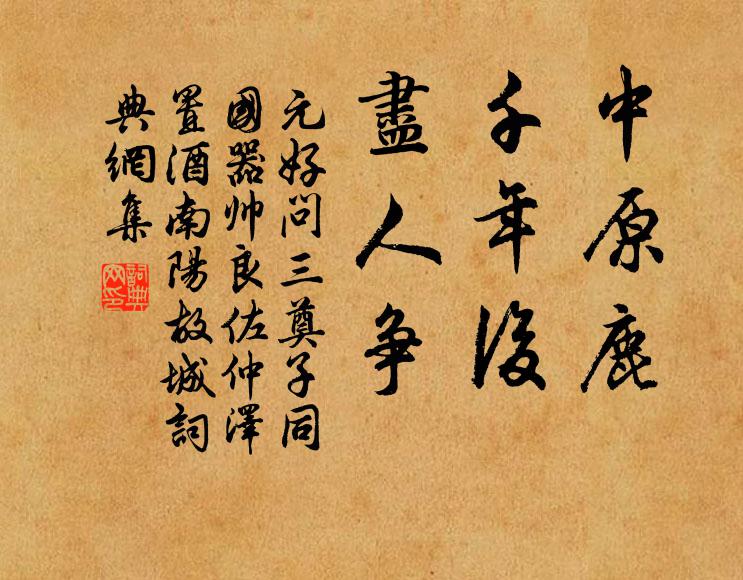 中原鹿
千年後
盡人争
元好问三奠子同
國器帅良佐仲澤
置酒南陽故城詞
典網集
詞典
网印